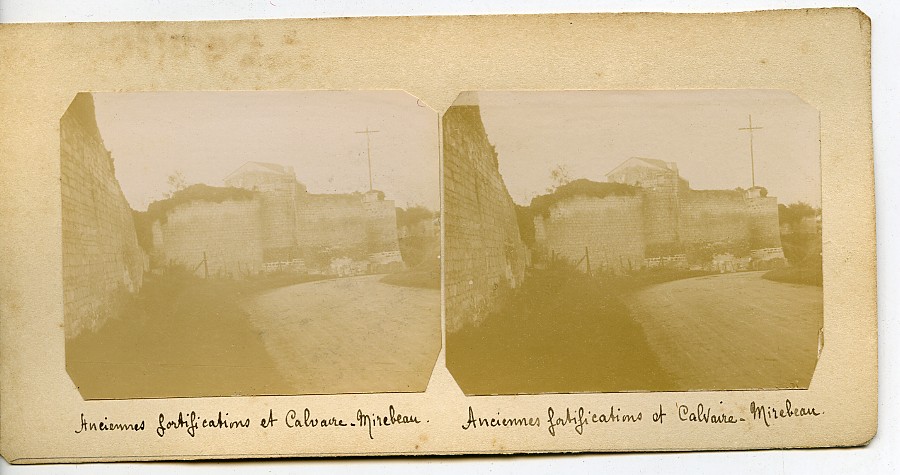 Anciennes fortifications et Calvaire - Mirebeau.
Anciennes fortifications et Calvaire - Mirebeau.